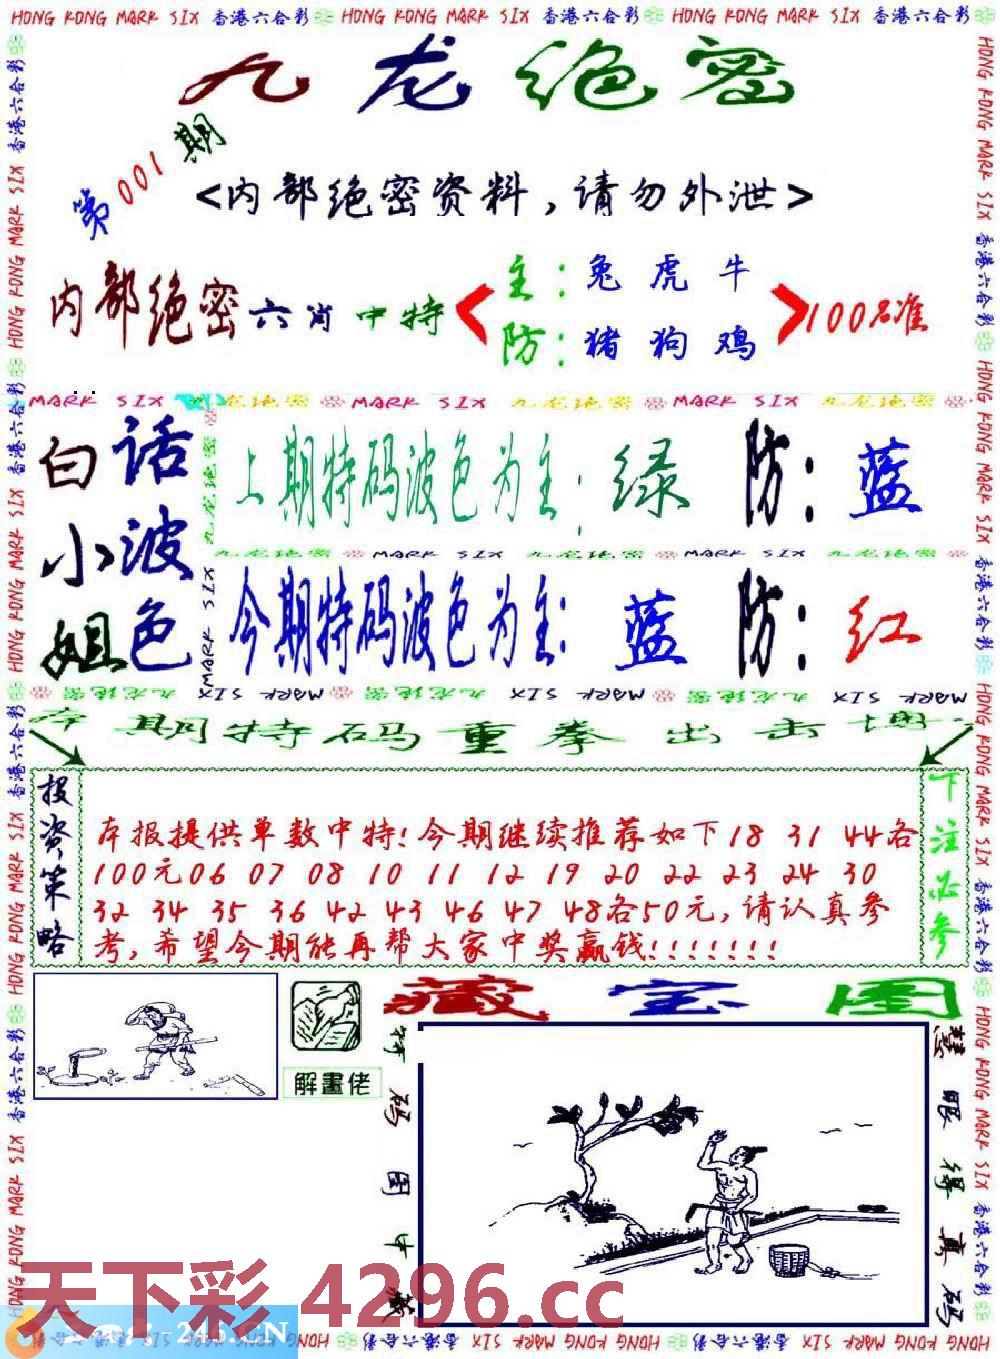 HONG KONG MARK SIX 香港六合彩 HONG KONG MARK SIX 香港六合彩 HONG KONG MARK SIX 香港六合彩
九龙绝密
第001期
<内部绝密资料,请勿外泄>
内部绝密六肖中特
主:兔虎牛
防:猪狗鸡
100%准
MARK SIX 九龙绝密 MARK SIX 九龙绝密 MARK SIX 九龙绝密
白小姐
话波色
上期特码波色为主:绿 防:蓝
九龙绝密 MARK SIX 九龙绝密 MARK SIX 九龙绝密
今期特码波色为主:蓝 防:红
本期特码重拳出击
投资策略
本报提供单数中特!今期继续推荐如下18 31 44各
100元06 07 08 10 11 12 19 20 22 23 24 30
32 34 35 36 42 43 46 47 48各50元,请认真参
考,希望今期能再帮大家中奖赢钱!!!!!!!
下注必参
藏宝图
解畫佬
特码图中藏
慧眼得真码
天下彩 4296.cc
246.CN